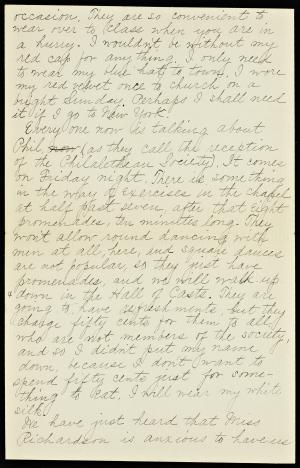 occasion. They are so convenient to
wear over to class when you are in
a hurry. I wouldn't be without my
red cap for anything. I only need
to wear my blue hat to town. I wore
my red velvet once to church on a
bright Sunday. Perhaps I shall need
it if I go to New York!
Every one now is talking about
Phil, now (as they call the reception
of the Philalethean Society). It comes
on Friday night. There is something
in the way of exercises in the chapel
at half past seven, after that eight
promenades, ten minutes long. They
won't allow round dancing with
men at all, here, and square dances
are not popular, so they just have
promenades, and we will walk up
& down in the Hall of Casts. They are
going to have refreshments, but they
charge fifty cents for them to all
who are not members of the society,
and so I didn't put my name
down, because I don't want to
spend fifty cents just for some-
thing to eat. I will wear my white
silk.
We have just heard that Miss
Richardson is anxious to have us